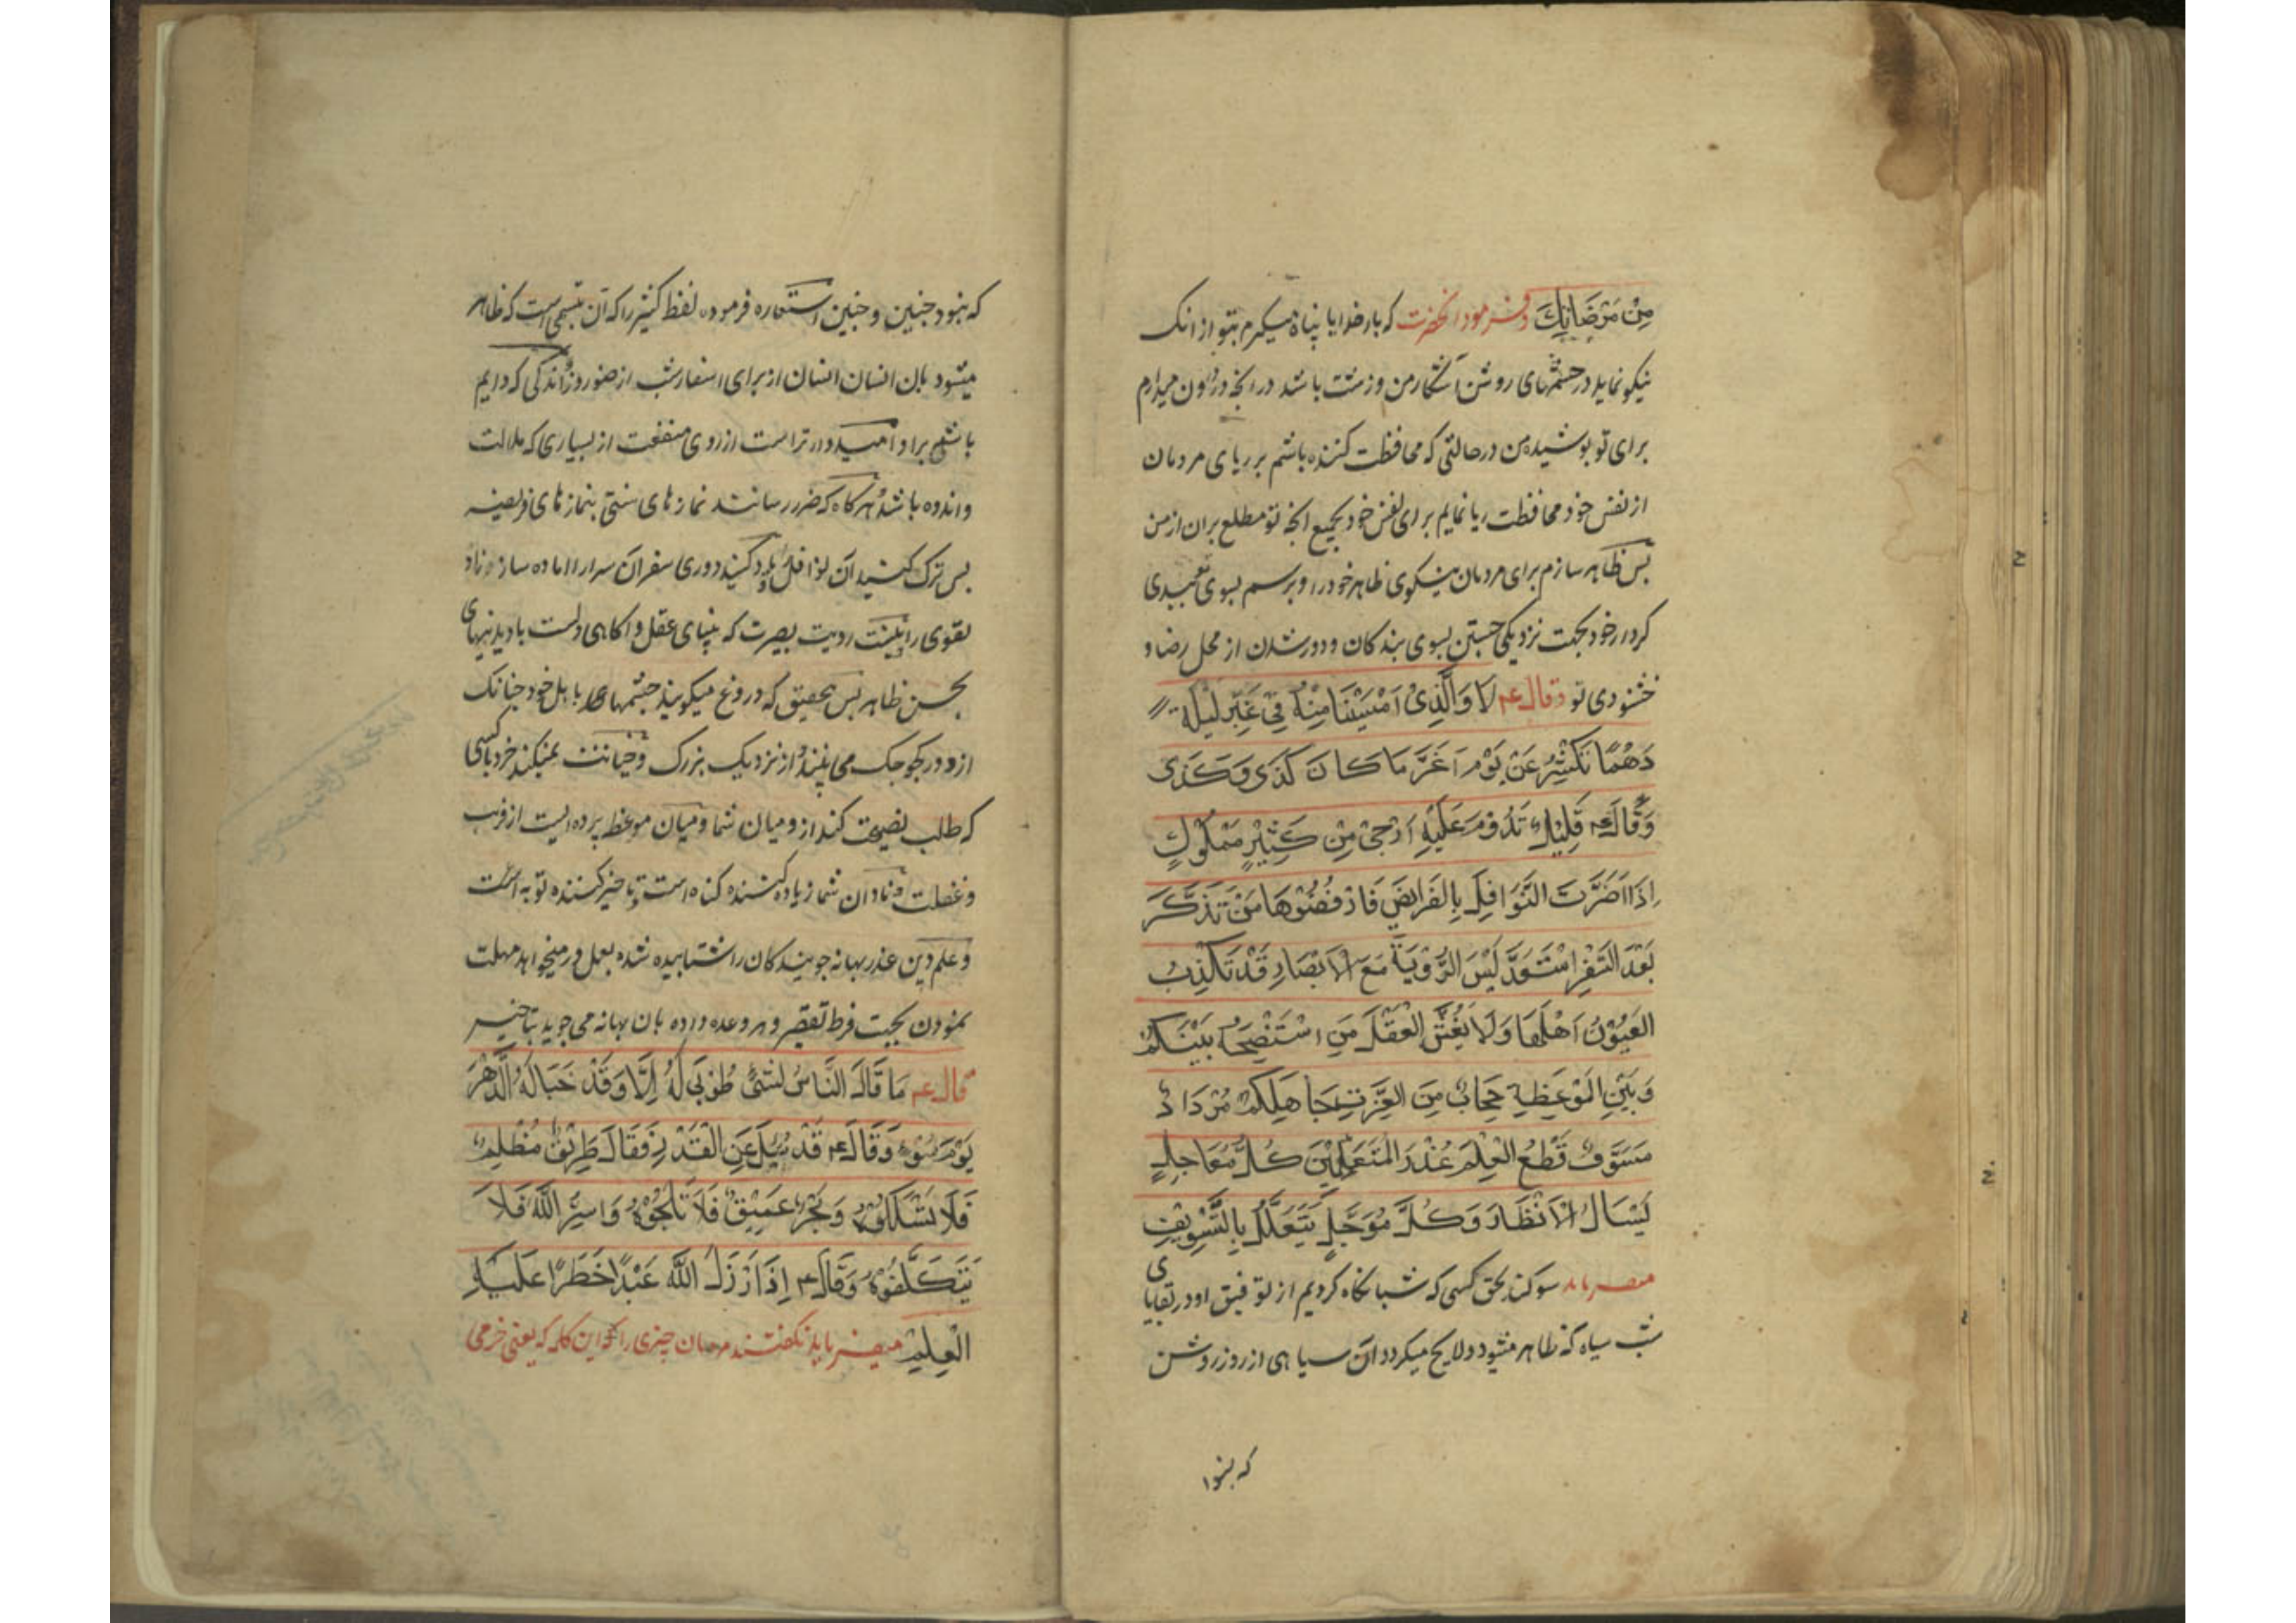 مِنْ مَرْضَاتِكَ وفرمود انحضرت که بار خدایا پناه میگیرم بتو از انک
نیکو نماید در چشمهای روشن آشکار من و زشت باشد در انچه در اون میدارم
برای تو پوشیده من در حالتی که محافظت کننده باشم بر ریای مردمان
از نفس خود محافظت ریا نمایم برای نفس خود بجمیع انچه تو مطلع بران از من
پس ظاهر سازم برای مردمان نیکوی ظاهر خود را و برسم بسوی تو ببدی
کردار خود بجهت نزدیکی جستن بسوی بندکان و دور شدن از محل رضا و
خشنودی تو وقال ع لَا وَالَّذِیْ اَمْسَیْنَا مِنْهُ فِیْ غَبَّرِ لَیْلَةٍ
دَهْمَا تَکْشِرُ عَنْ یَوْمٍ اَغَرَّ مَا کَانَ کَذَی وَکَذَی
وَقَالَ ع قَلِیْلٌ تَدُوْمُ عَلَیْهِ اَرْجَیْ مِنْ کَثِیْرٍ مَمْلُوْلٍ
اِذَا اَضَرَّتِ النَّوَافِلُ بِالفَرَایِضِ فَارْفُضُوْهَا مَنْ تَذَکَّرَ
بُعْدَ السَّفَرِ اسْتَعَدَّ لَیْسَ الرُّوْیَةُ مَعَ الْاَبْصَارِ قَدْ تَکْذِبُ
العُیُوْنُ اَهْلَهَا وَلَا یَغُشُّ الْعَقْلُ مَنِ اسْتَنْصَحَهُ بَیْنَکُمْ
وَبَیْنَ المَوْعِظَةِ حِجَابٌ مِنَ الغِرَّةِ جَاهِلُکُمْ مُزْدَادٌ
مُسَوِّفٌ قَطَعَ الْعِلْمُ عُذْرَ المُتَعَلِّلِیْنَ کُلُّ مُعَاجَلٍ
یَسْاَلُ الْاِنْظَارَ وَکُلُّ مُوَجَّلٍ یَتَعَلَّلُ بِالتَّسْوِیْفِ
میفرماید سوکند بحق کسی که شبانکاه کردیم از توفیق او در بقایای
شب سیاه که ظاهر میشود و لایح میکردد ان سیاهی از روز روشن
که نبود
که نبود چنین و چنین استعاره فرموده لفظ کثیر را که آن تبسمی است که ظاهر
میشود بان انسان از برای اسفار شب از صنو روز اندکی که دایم
باشی براو امیدوار تر است از روی منفعت از بسیاری که ملالت
واندوه باشد هرکاه که ضرر رسانند نمازهای سنتی بنمازهای فریضه
پس ترک کنید آن نوافل را یاد کنید دوری سفر ان سرا را اماده سازد زاد
تقوی را نیست رویت بصیرت که بینای عقل و اکاهی دلست با دیدنیهای
بحسن ظاهر پس بتحقیق که دروغ میکویند چشمهای با اهل خود چنانک
از دور کوچک می بینند و از نزدیک بزرک وخیانت نمیکند خرد با کسی
که طلب نصیحت کند ازو میان شما و میان موعظ پرده ایست از فریب
وغفلت و نادان شما زیاده کننده کناه است و تاخیر کننده توبه است
وعلم دین عذر بهانه جویندکان را شتابیده نشده بعمل و ر میخواهد مهلت
نمودن بجهت فرط تقصیر و هر وعده داده بان بهانه می جوید بتاخیر
قال ع مَا قَالَ النَّاسُ لِشَیْءٍ طُوْبَی لَهُ اِلَّا وَقَدْ خَبَا لَهُ الدَّهْرُ
یَوْمَ سُوْءٍ وَقَالَ ع قَدْ سُئِلَ عَنِ الْقَدْرِ فَقَالَ طَرِیْقٌ مُظْلِمٌ
فَلَا تَسْلُکُوْهُ وَبَحْرٌ عَمِیْقٌ فَلَا تَلِجُوْهُ وَاسِرُّ اللّٰهِ فَلَا
تَتَکَلَّفُوْهُ وَقَالَ ع اِذَا اَرْذَلَ اللّٰهُ عَبْدًا خَطَرًا عَلَیْهِ
الْعِلْمَ میفرماید نکفتند مردمان چیزی را که این کلمه که یعنی خرمی